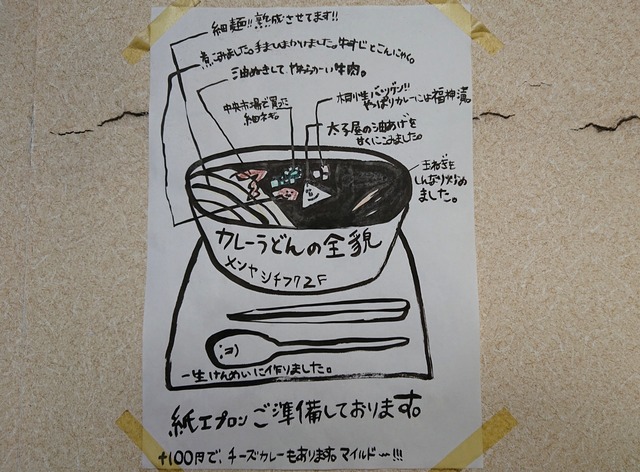 細麺!!熟成させてます!!
煮こみました。手まひまかけました。牛すじとこんにゃく。
油ぬきして やわらかーい牛肉。
中央市場で買った
細ネギ。
相性バツグン!!
やっぱりカレーには福神漬。
大子屋の油あげを
甘くにこみました。
玉ねぎを
しんなり炒め
ました。
カレーうどんの全貌
メンヤ シチフク2F
一生けんめいに作りました。
紙エプロンご準備しております。
+100円で、チーズカレーもあります。マイルド〜!!!